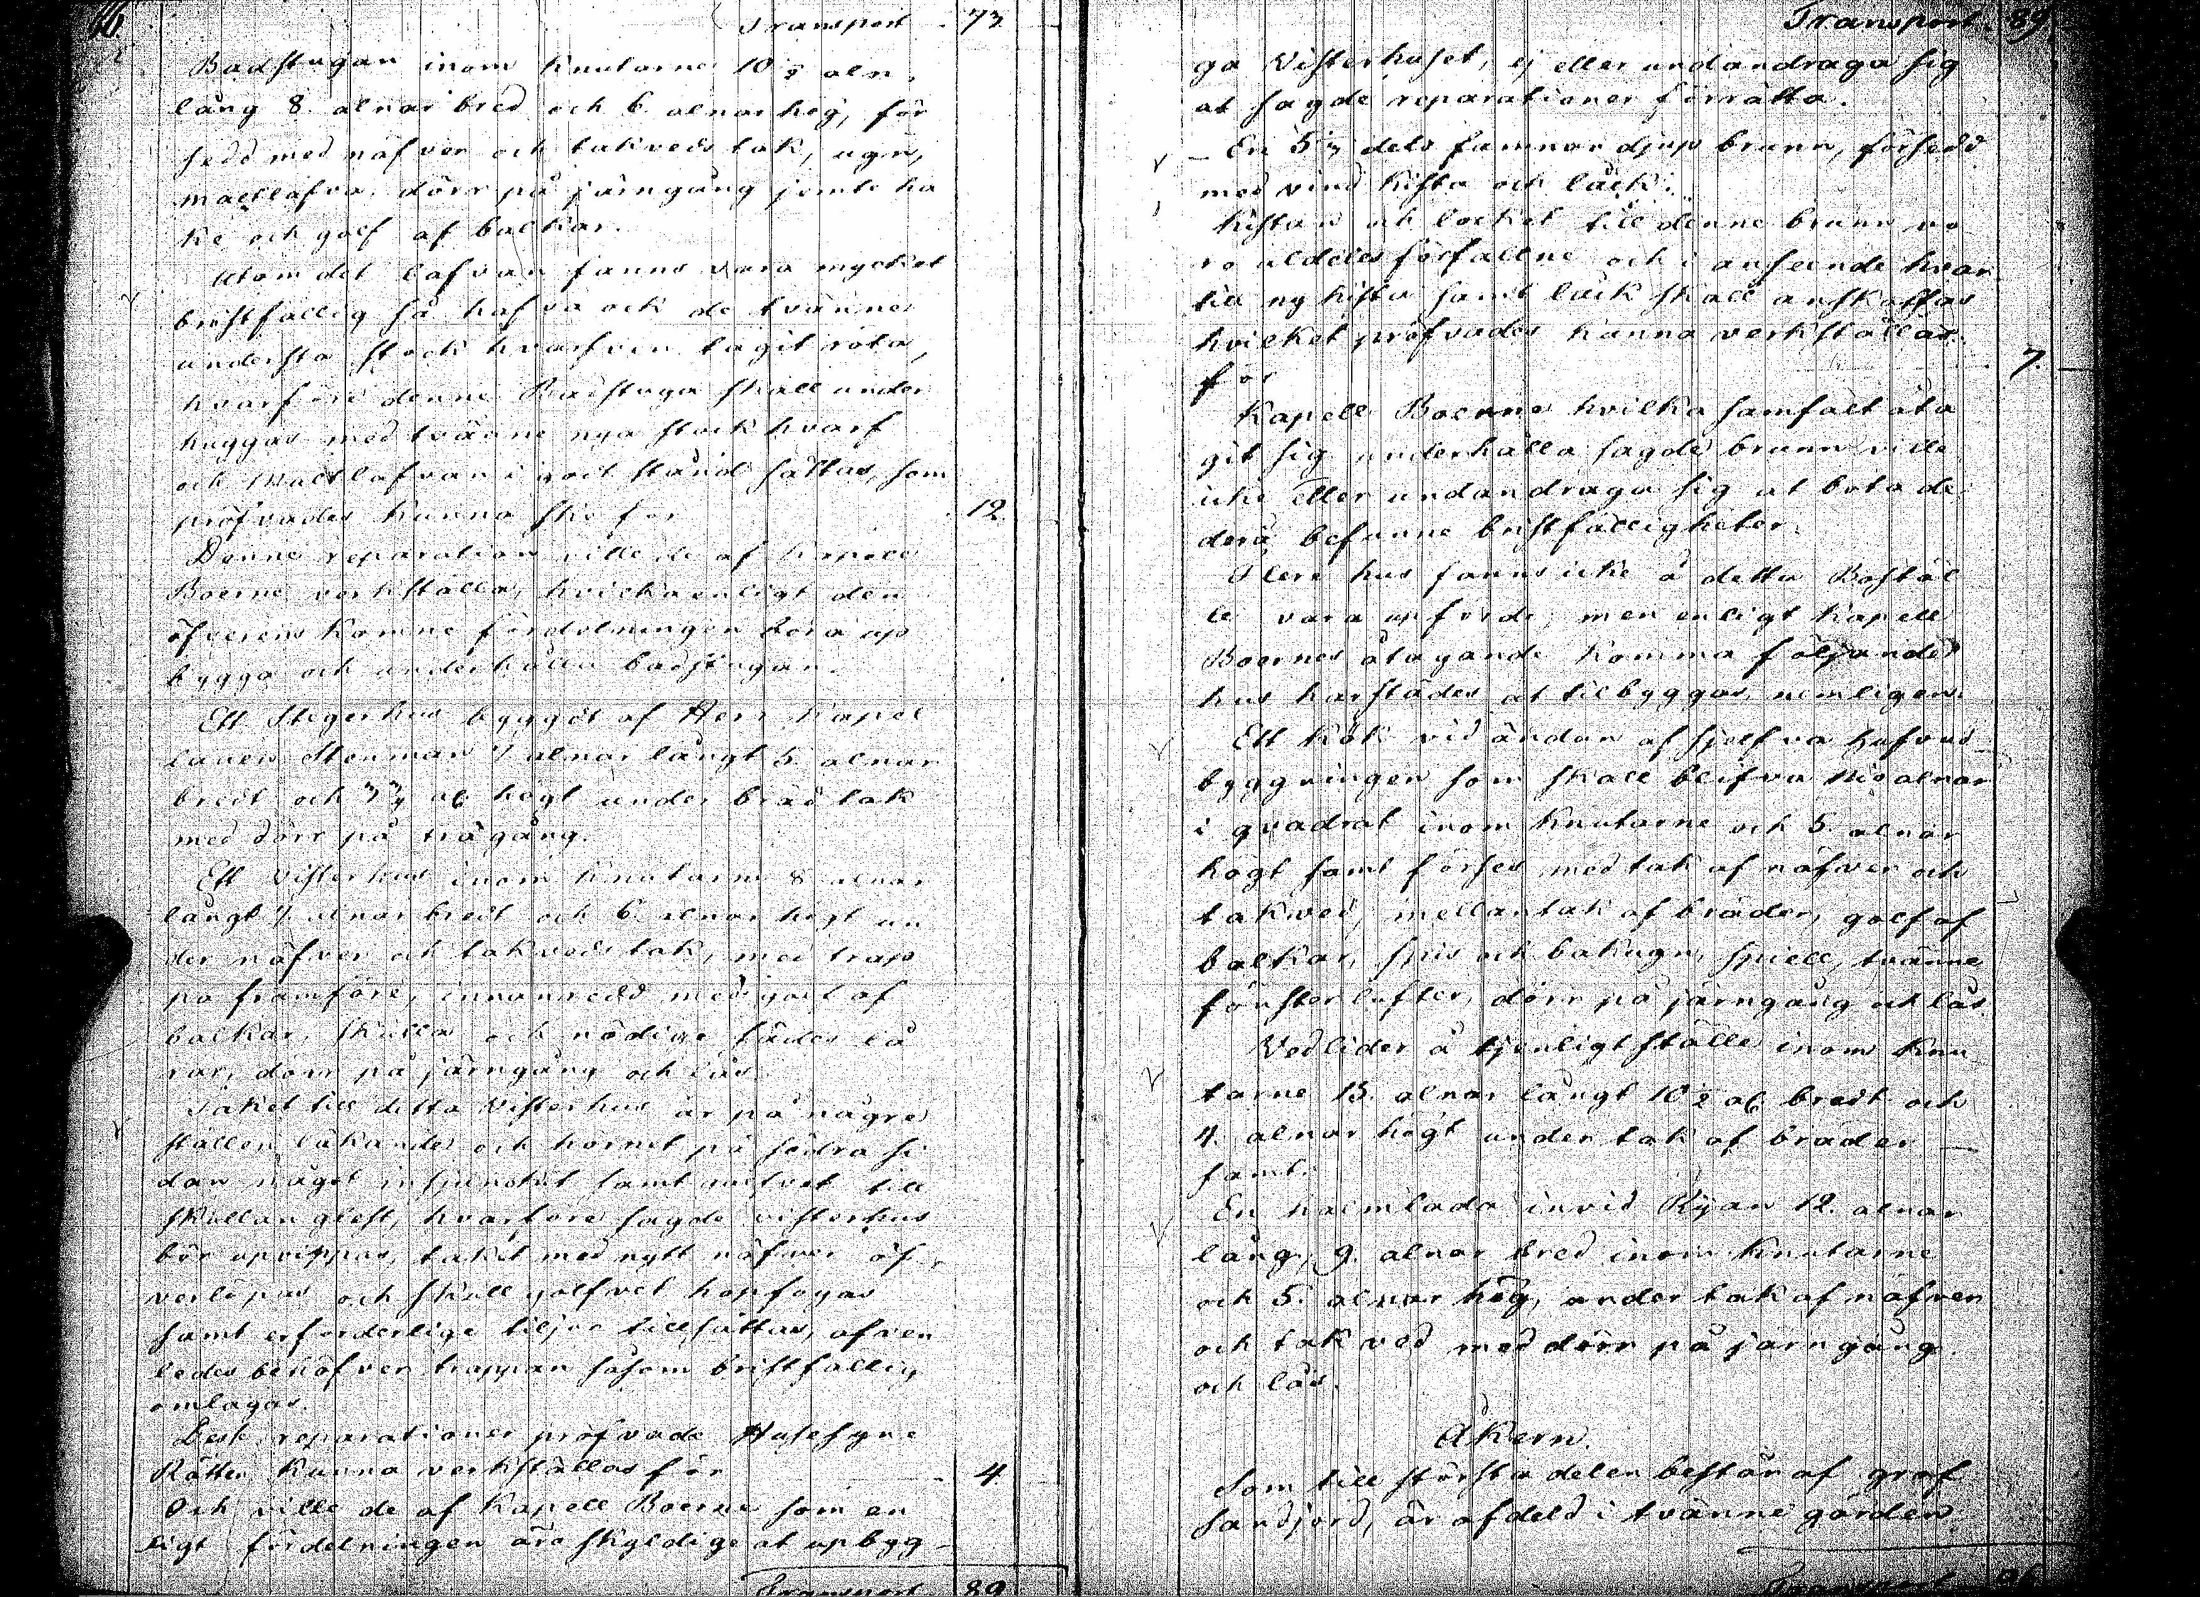 Transport 73
Badstugan inom Knutarne 10 ½ aln.
lång 8. alnar bred och 6 alnar hög, för
sedd med näfver och takveds tak, ugn,
maltlafva, dörr på järngång jemte ha
ke och golf af balkar.
Utom det lafvan fanns vara mycket
bristfällig så hafva ock de tvänne
understa stock hvarfven tagit röta,
hvarföre denne Badstuga skall under
huggas med tvänne nya stock hvarf
och Maltlafvan i godt stånd sättas, som
pröfvades kunna ske för 12
Denne reparation ville de af Kapell
Boerne verkställa, hvilka enligt den
öfverens komne fördelningen böra up
bygga och underhålla badstugan.
Ett Stegerhus bygget af Herr Kapel
lanen Stenman 7 alnar långt 5. alnar
bredt och 3 ¾ al högt under bräd tak
med dörr på trägång.
Ett Visterhus inom Knutarne 8 alnar
långt 7. alnar bredt och 6. alnar högt un
der näfver och takveds tak, med trap
pa framföre, innanredd med golf af
balkar, skulla och nödige sädes lå
rar, dörr på järngång och lås.
Taket till detta Visterhus är på någre
ställen läkande och hörnet på södra si
dan något insjunckit samt golfvet till
skullan glest, hvarföre sagde visterhus
bör upvippas, taket med nytt näfver öf
verlöpas och skull golfvet hopfogas
samt erforderlige tiljor tillsättas, äfven
ledes behöfver trappan såsom bristfällig
omlagas.
Desse reparationer pröfvade Husesyne
Rätten kunna verkställas för 4
Och ville de af Kapell Boerne som en
ligt fördelningen äro skyldige at upbyg
Transport 89
Transport 89
ga Visterhuset, ej eller undandraga sig
at sagde reparationer förrätta.
En 5 dels famnar djup brunn, försedd
med vind kista och läck.
Kistan och locket till denne brunn vo
ro aldeles förfallne och i anseende hvar
till ny kista samt läck skall anskaffas
hvilket pröfvades kunna verkställas
för 7.
Kapell Boerne hvilka samfält åta
git sig underhålla sagde brunn ville
icke eller undandraga sig at bota de
derå befunne bristfälligheter.
Flere hus fanns icke å detta Boställ
le vara upförde, men enligt Kapell
Boernes åtagande komma följande
hus härstädes at tilbyggas, nemligen:
Ett Kök vid ändan af sjelfva hufvud
byggningen som skall blifva nio alnar
i qvadrat inom knutarne och 5. alnar
högt samt förses med tak af näfver och
takved, mellantak af bräder, golf af
balkar, spis och bakugn, spiell, tvänne
fönster lufter, dörr på järngång och lås.
Vedlider å tjenligt ställe inom Knu
tarne 15. alnar långt 10 ½ al bredt och
4. alnar högt under tak af bräder
samt
En halmlada invid Rijan 12. alnar
lång, 9. alnar bred inom Knutarne
och 5. alnar hög, under tak af näfver
och takved med dörr på järngång
och lås.
Åkern.
Som till största delen består af grof
sandjord, är afdeld i tvänne gärden
Transport 96